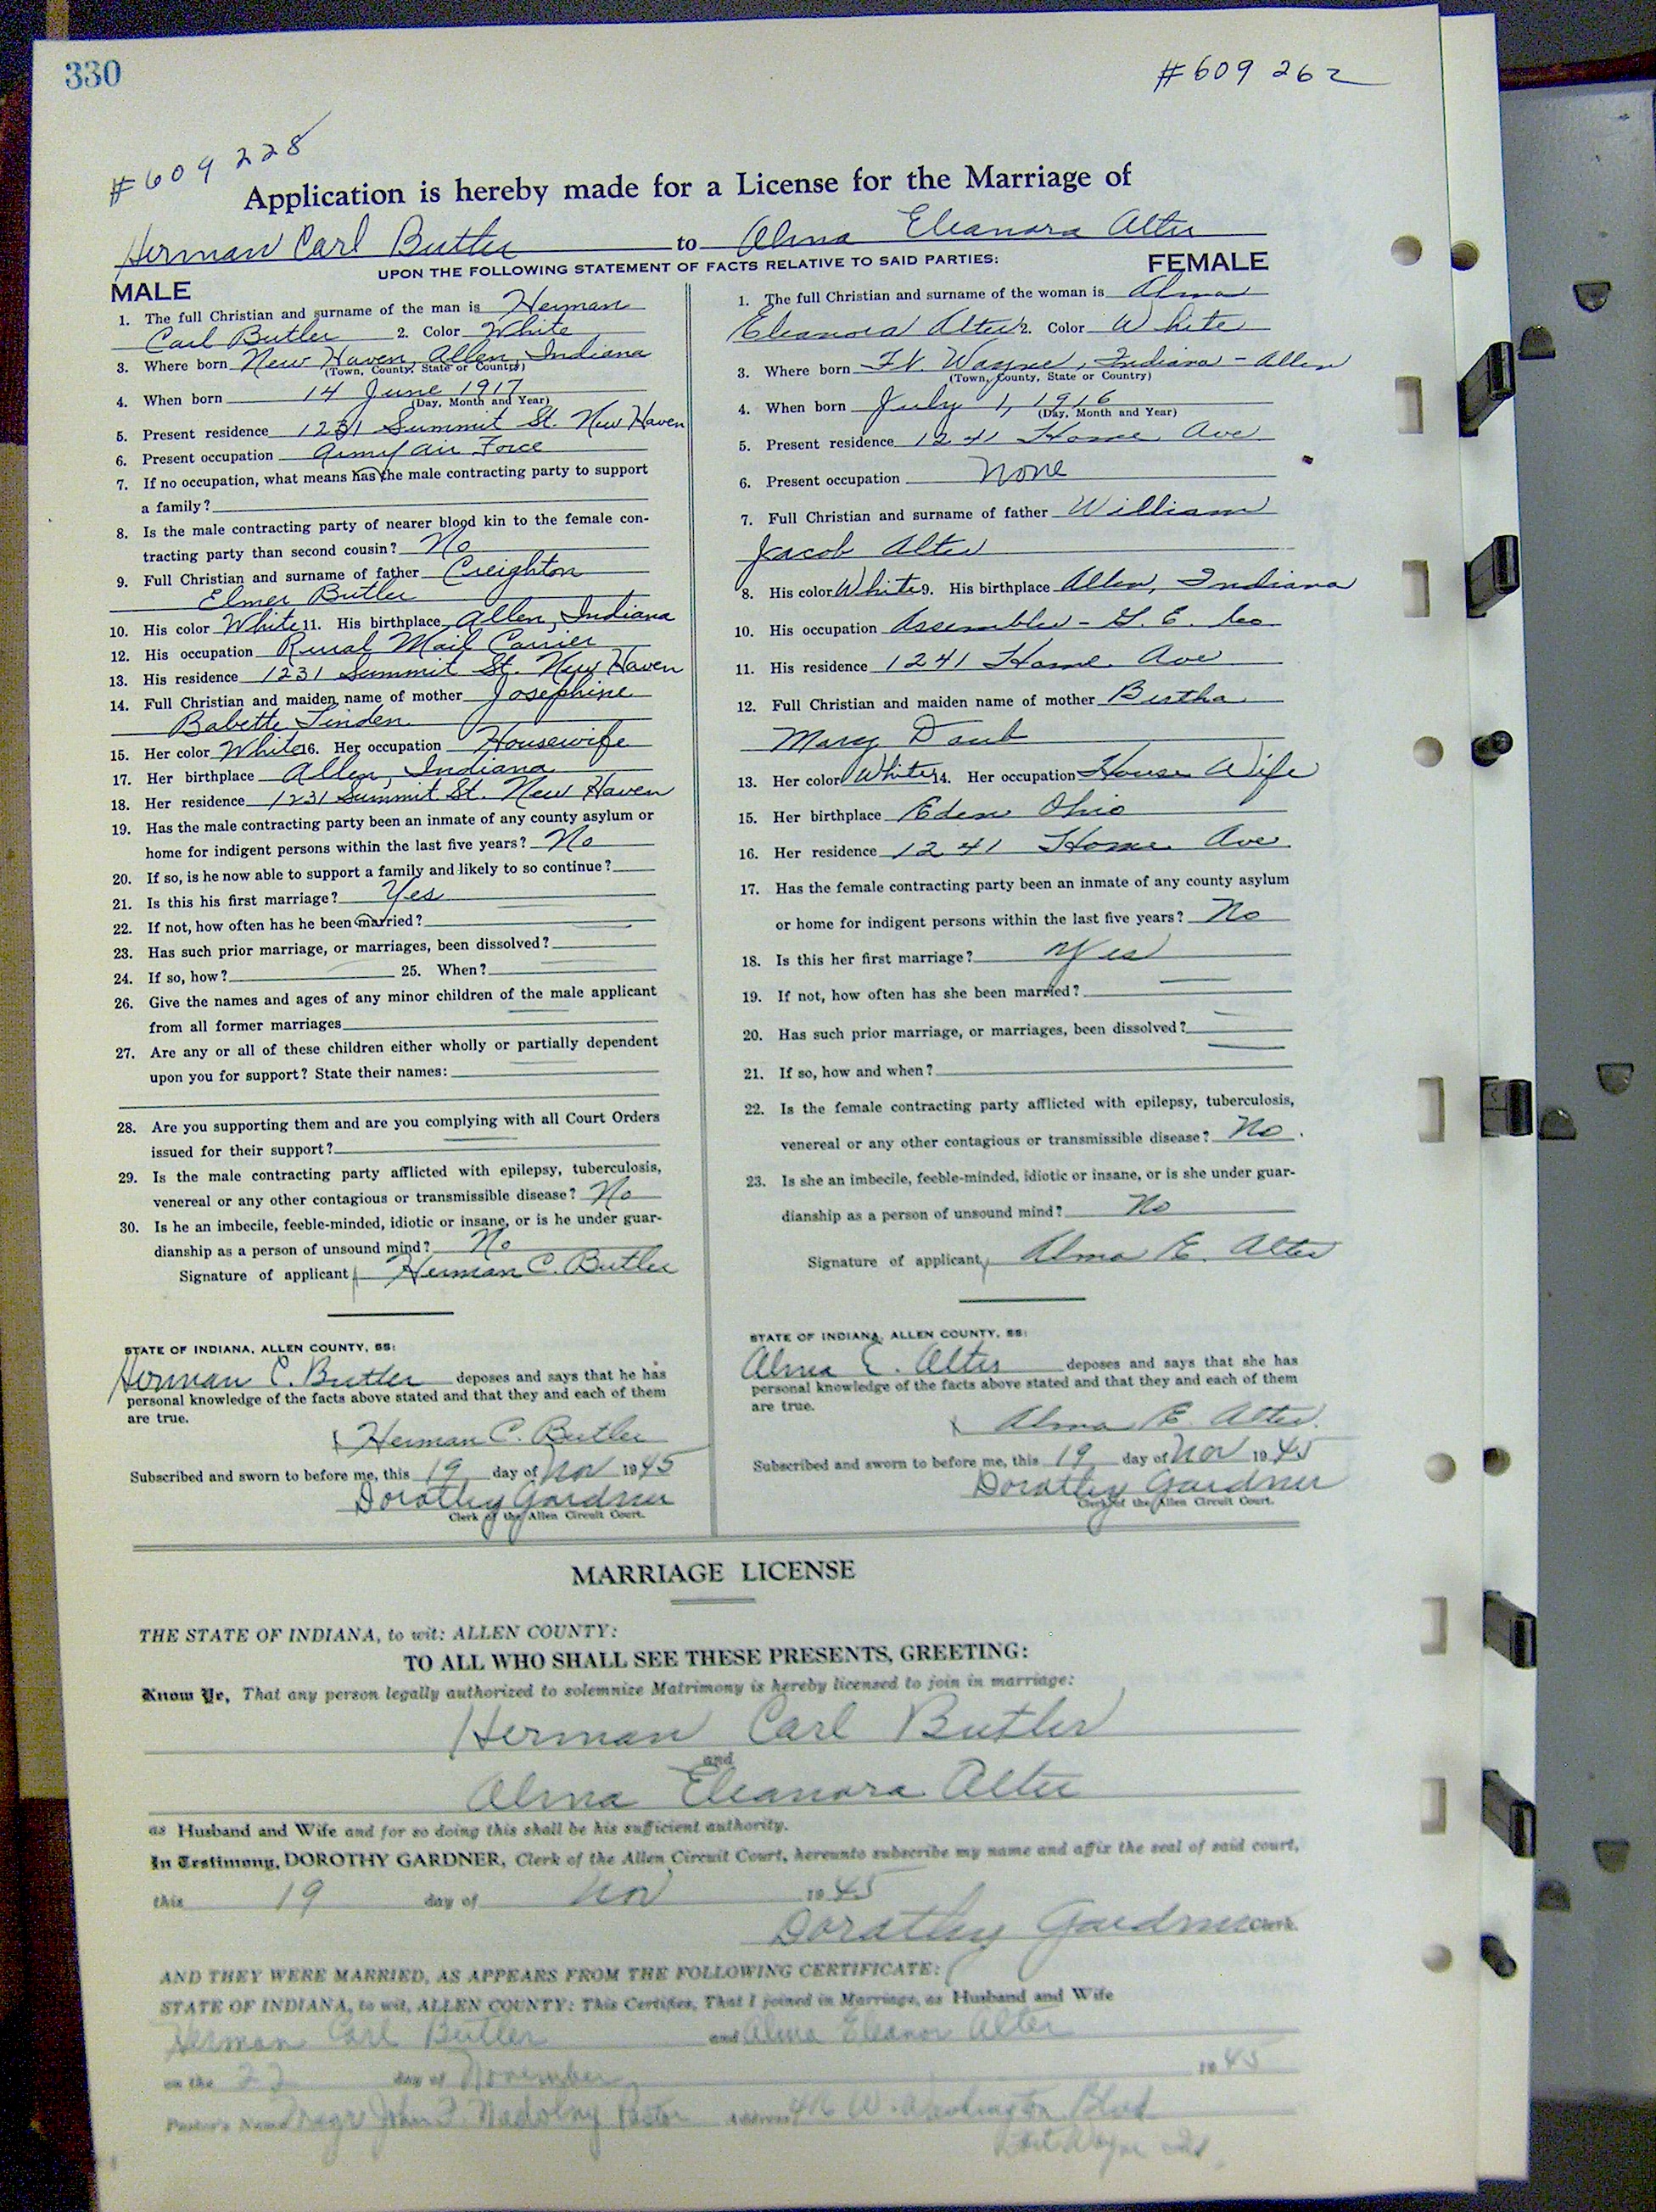 330
#609 262
#609 228
Application is hereby made for a License for the Marriage of
Herman Carl Butler to Alma Eleanora Alter
UPON THE FOLLOWING STATEMENT OF FACTS RELATIVE TO SAID PARTIES:
MALE
1. The full Christian and surname of the man is Herman
Carl Butler 2. Color White
3. Where born New Haven, Allen, Indiana
(Town, County, State or Country)
4. When born 14 June 1917
(Day, Month and Year)
5. Present residence 1231 Summit St. New Haven
6. Present occupation Army Air Force
7. If no occupation, what means has the male contracting party to support
a family?
8. Is the male contracting party of nearer blood kin to the female con-
tracting party than second cousin? No
9. Full Christian and surname of father Creighton
Elmer Butler
10. His color White 11. His birthplace Allen, Indiana
12. His occupation Rural Mail Carrier
13. His residence 1231 Summit St. New Haven
14. Full Christian and maiden name of mother Josephine
Babette Linden
15. Her color White 16. Her occupation Housewife
17. Her birthplace Allen, Indiana
18. Her residence 1231 Summit St. New Haven
19. Has the male contracting party been an inmate of any county asylum or
home for indigent persons within the last five years? No
20. If so, is he now able to support a family and likely to so continue?
21. Is this his first marriage? Yes
22. If not, how often has he been married?
23. Has such prior marriage, or marriages, been dissolved?
24. If so, how? 25. When?
26. Give the names and ages of any minor children of the male applicant
from all former marriages
27. Are any or all of these children either wholly or partially dependent
upon you for support? State their names:
28. Are you supporting them and are you complying with all Court Orders
issued for their support?
29. Is the male contracting party afflicted with epilepsy, tuberculosis,
venereal or any other contagious or transmissible disease? No
30. Is he an imbecile, feeble-minded, idiotic or insane, or is he under guar-
dianship as a person of unsound mind? No
Signature of applicant Herman C. Butler
STATE OF INDIANA, ALLEN COUNTY, SS:
Herman C. Butler deposes and says that he has
personal knowledge of the facts above stated and that they and each of them
are true.
Herman C. Butler
Subscribed and sworn to before me, this 19 day of Nov 1945
Dorothy Gardner
Clerk of the Allen Circuit Court.
FEMALE
1. The full Christian and surname of the woman is Alma
Eleanora Alter 2. Color White
3. Where born Ft. Wayne, Indiana - Allen
(Town, County, State or Country)
4. When born July 1, 1916
(Day, Month and Year)
5. Present residence 1241 Home Ave
6. Present occupation none
7. Full Christian and surname of father William
Jacob Alter
8. His color White 9. His birthplace Allen, Indiana
10. His occupation Assembler - G. E. Co
11. His residence 1241 Home Ave
12. Full Christian and maiden name of mother Bertha
Mary Daub
13. Her color White 14. Her occupation House Wife
15. Her birthplace Eden Ohio
16. Her residence 1241 Home Ave
17. Has the female contracting party been an inmate of any county asylum
or home for indigent persons within the last five years? No
18. Is this her first marriage? Yes
19. If not, how often has she been married?
20. Has such prior marriage, or marriages, been dissolved?
21. If so, how and when?
22. Is the female contracting party afflicted with epilepsy, tuberculosis,
venereal or any other contagious or transmissible disease? No.
23. Is she an imbecile, feeble-minded, idiotic or insane, or is she under guar-
dianship as a person of unsound mind? No
Signature of applicant Alma E. Alter
STATE OF INDIANA, ALLEN COUNTY, SS:
Alma E. Alter deposes and says that she has
personal knowledge of the facts above stated and that they and each of them
are true.
x Alma E. Alter.
Subscribed and sworn to before me, this 19 day of Nov 1945
Dorothy Gardner
Clerk of the Allen Circuit Court.
MARRIAGE LICENSE
THE STATE OF INDIANA, to wit: ALLEN COUNTY:
TO ALL WHO SHALL SEE THESE PRESENTS, GREETING:
Know Ye, That any person legally authorized to solemnize Matrimony is hereby licensed to join in marriage:
Herman Carl Butler
and
Alma Eleanora Alter
as Husband and Wife and for so doing this shall be his sufficient authority.
In Testimony, DOROTHY GARDNER, Clerk of the Allen Circuit Court, hereunto subscribe my name and affix the seal of said court,
this 19 day of Nov 1945
Dorothy Gardner Clerk.
AND THEY WERE MARRIED, AS APPEARS FROM THE FOLLOWING CERTIFICATE:
STATE OF INDIANA, to wit, ALLEN COUNTY: This Certifies, That I joined in Marriage, as Husband and Wife
Herman Carl Butler and Alma Eleanor Alter
on the 22 day of November 1945
Pastor's Name Msgr John F. Nadolny Pastor Address W. Washington Blvd
Fort Wayne